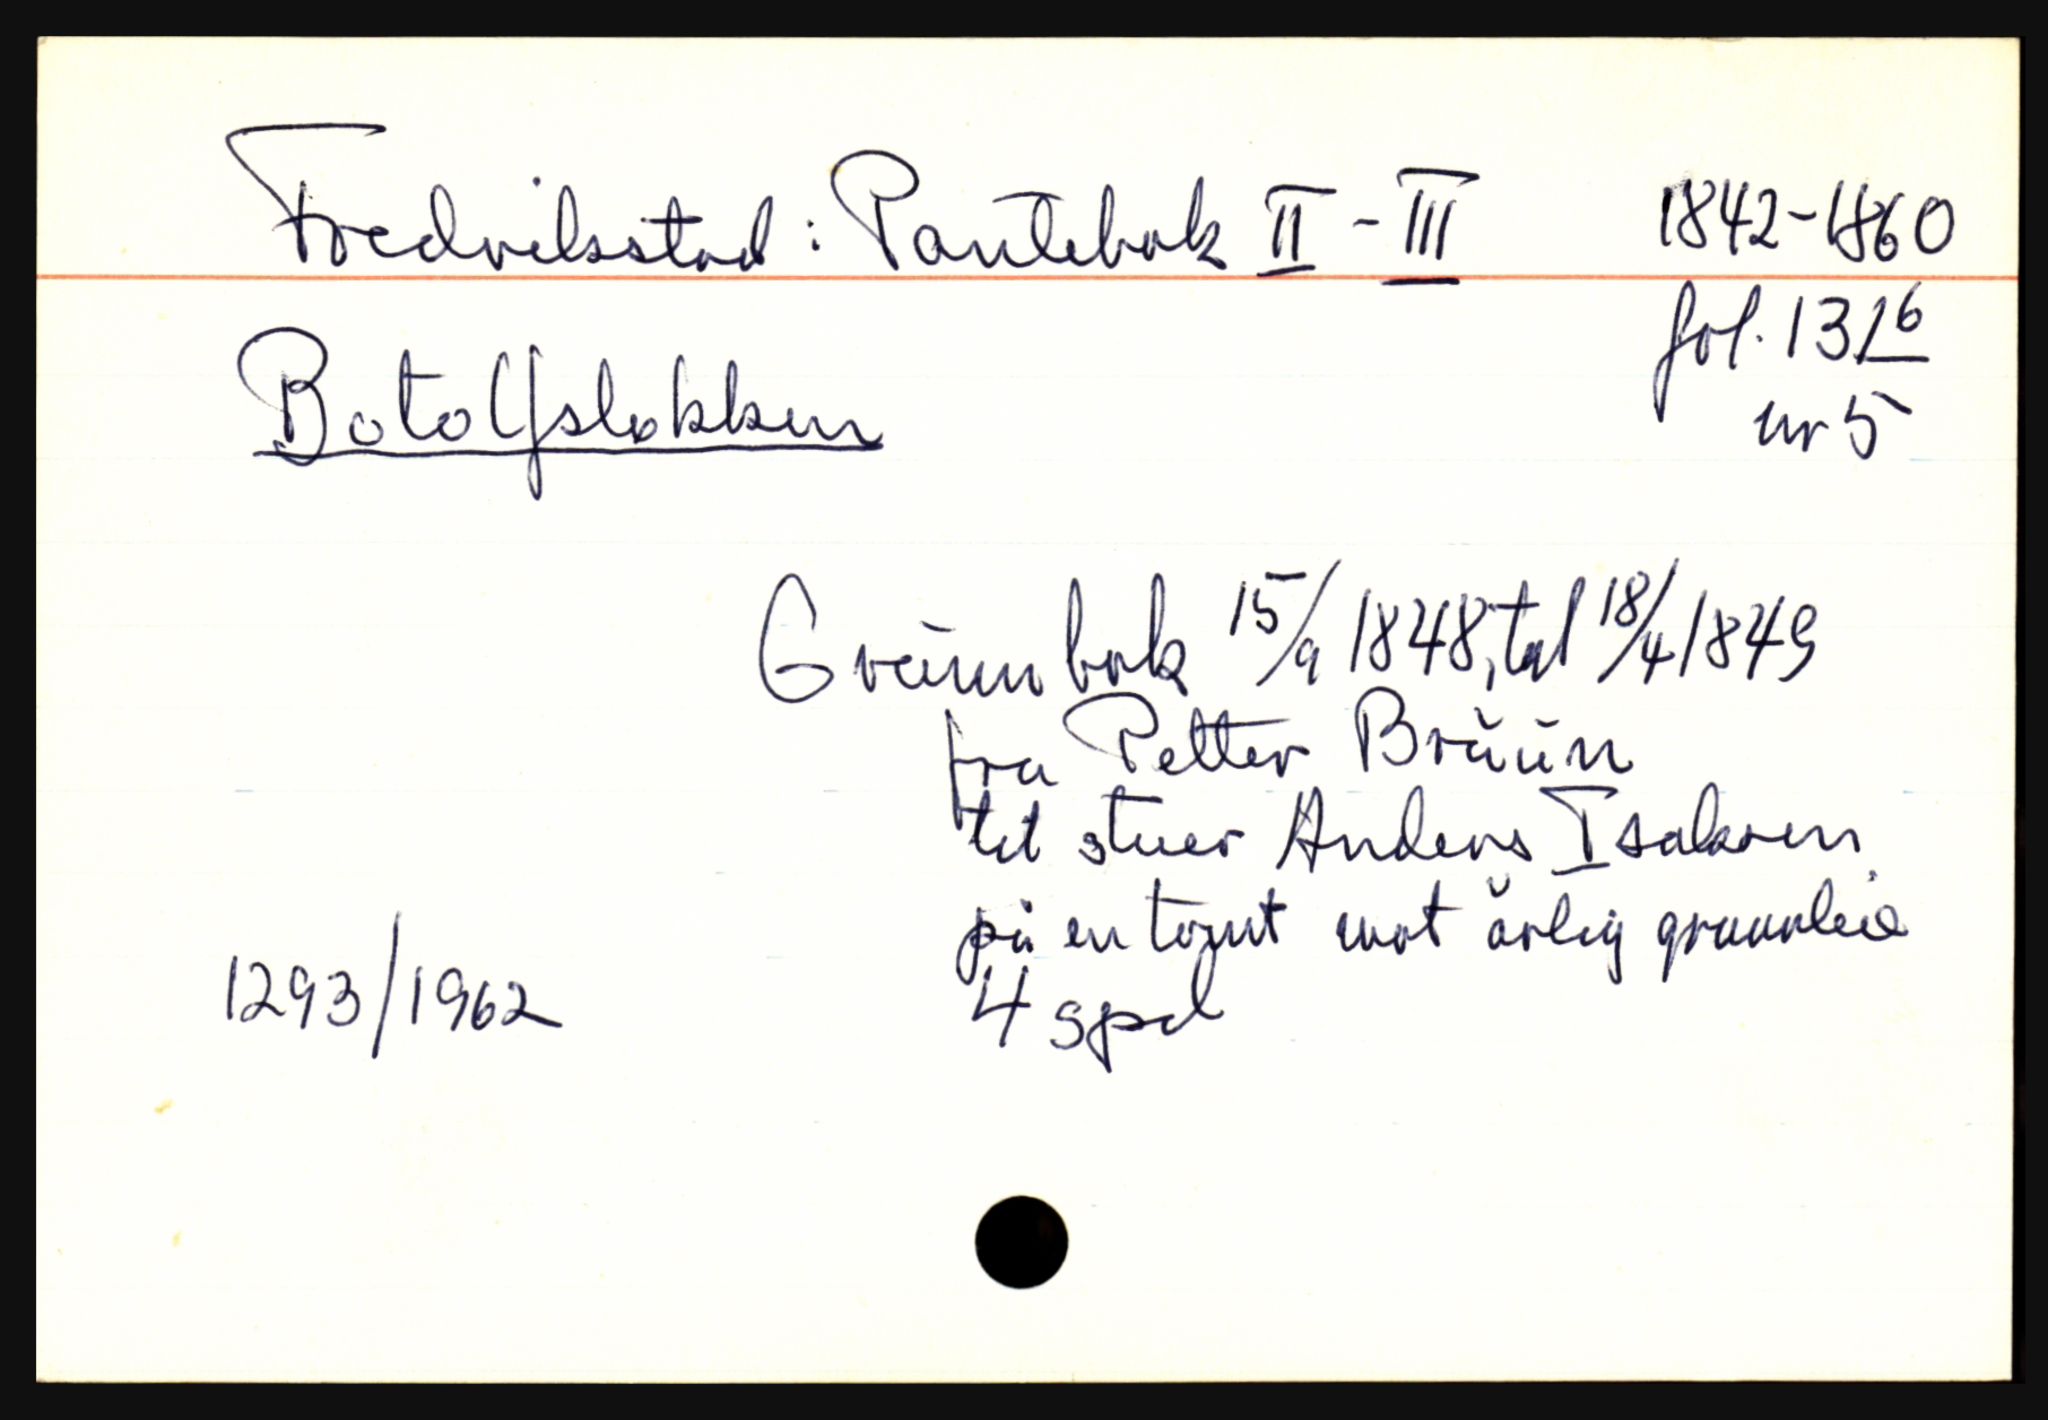 Fredrikstad: Pantebok II - III 1842-1860
fol. 131 6
Botolfsløkken
nr 5
Grunnbok 15/9 1848, tgl 18/4 1849
fra Petter Bruun
til stuer Anders Isaksen
på en tomt mot årlig grunnleie
1293/1962
4 spd